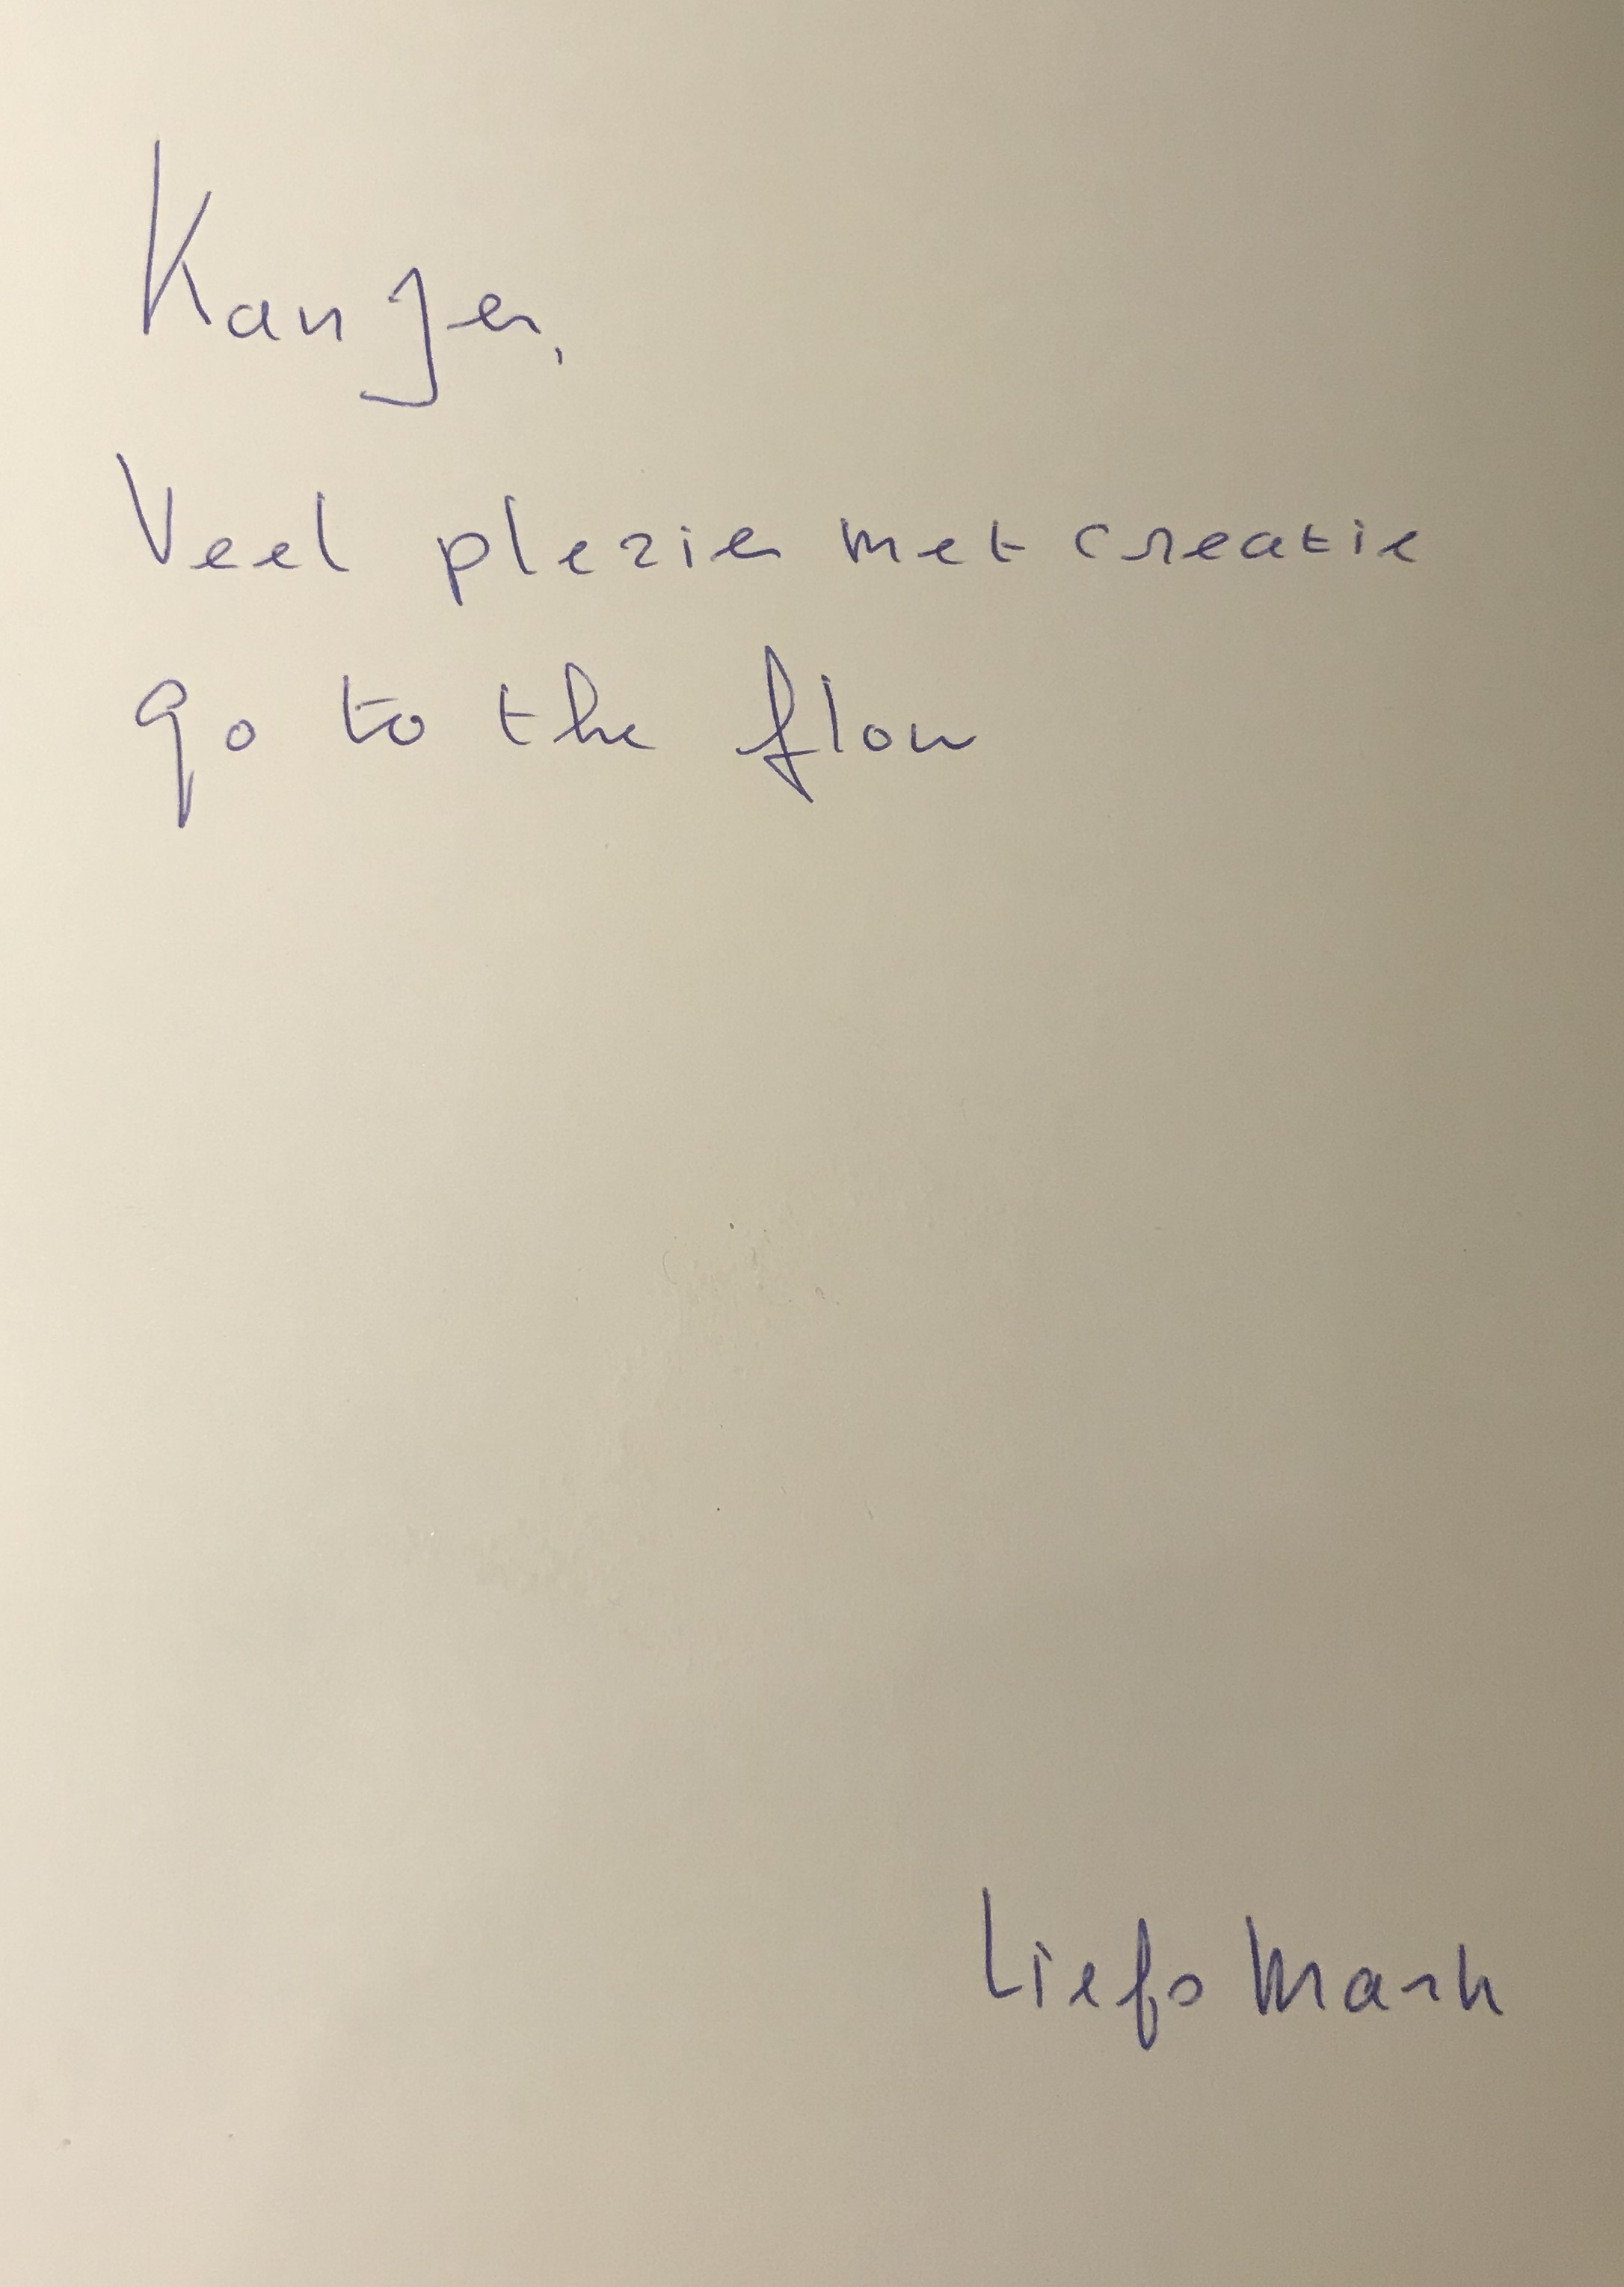 Kanjer,
Veel plezier met creatie
go to the flow
Liefs Mark